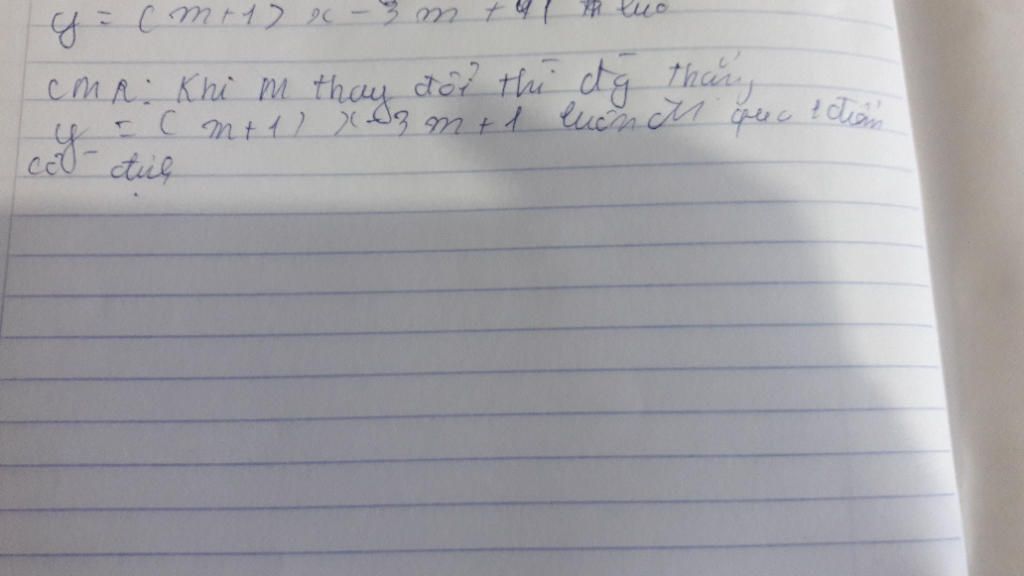 y = (m+1) x - 3m +
CMR: Khi m thay đổi thì đg thẳng
y = (m+1) x - 3m + 1 luôn đi qua 1 điểm
cố định